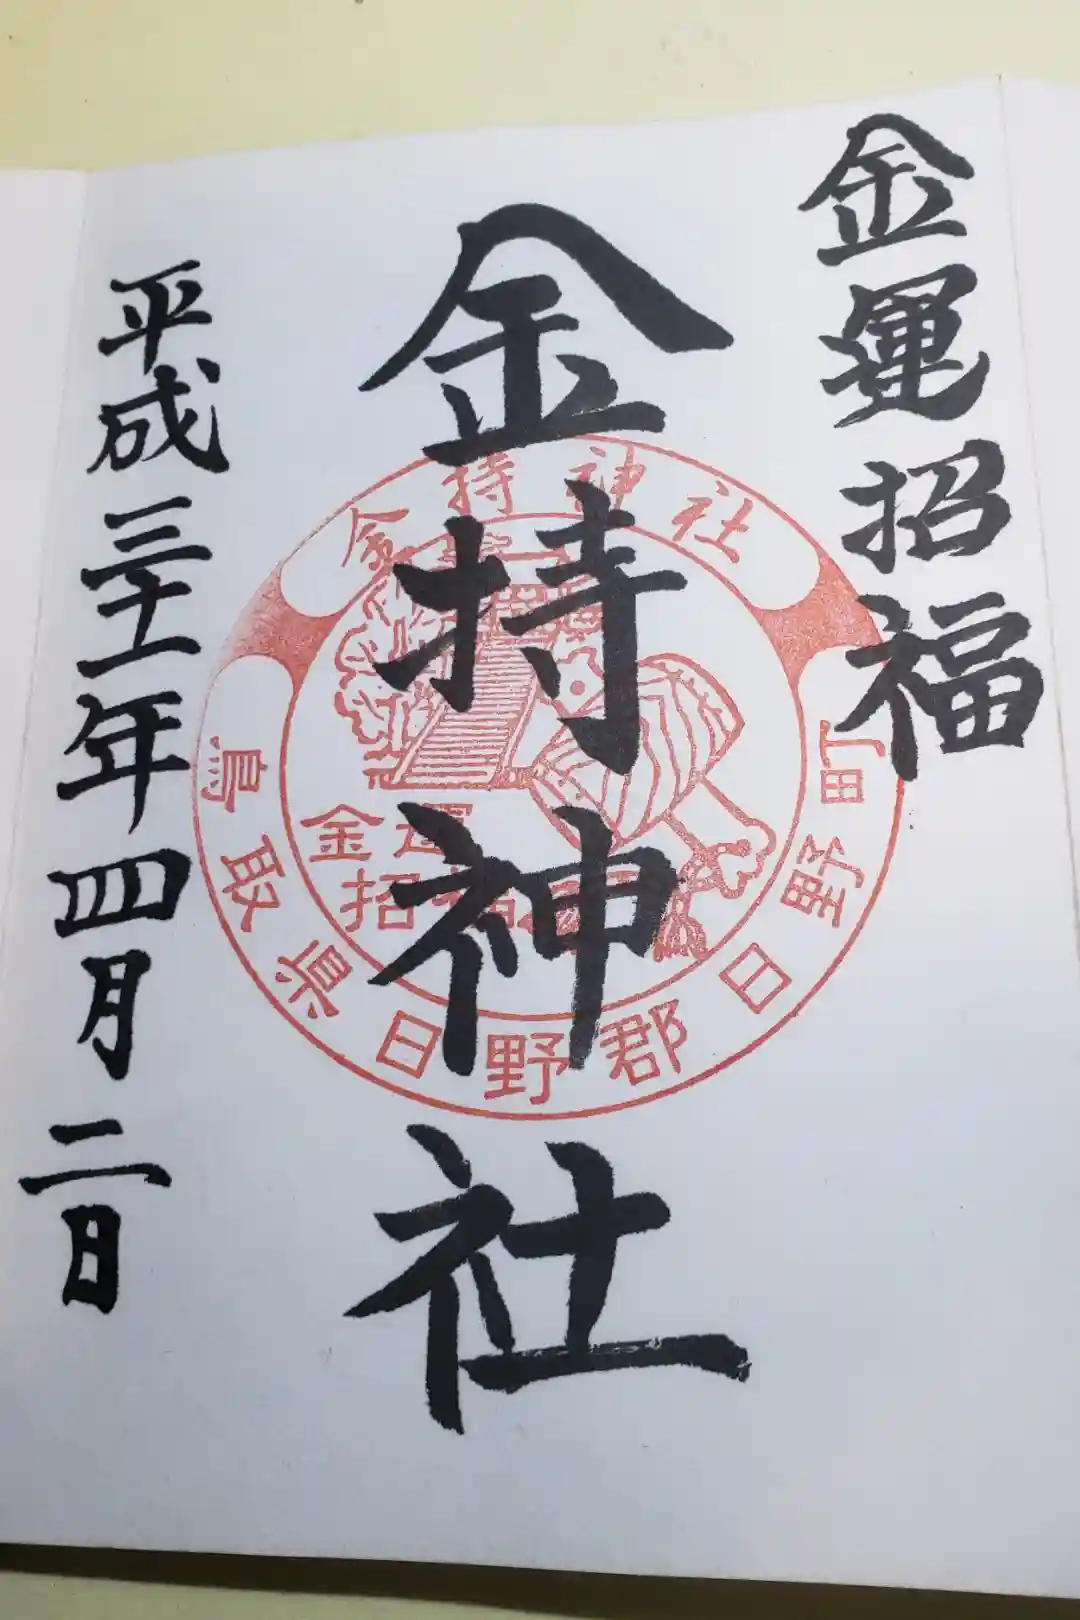 金運招福
金持神社
平成三十一年四月二日
金持神社
金運
招福
鳥取県日野郡日野町